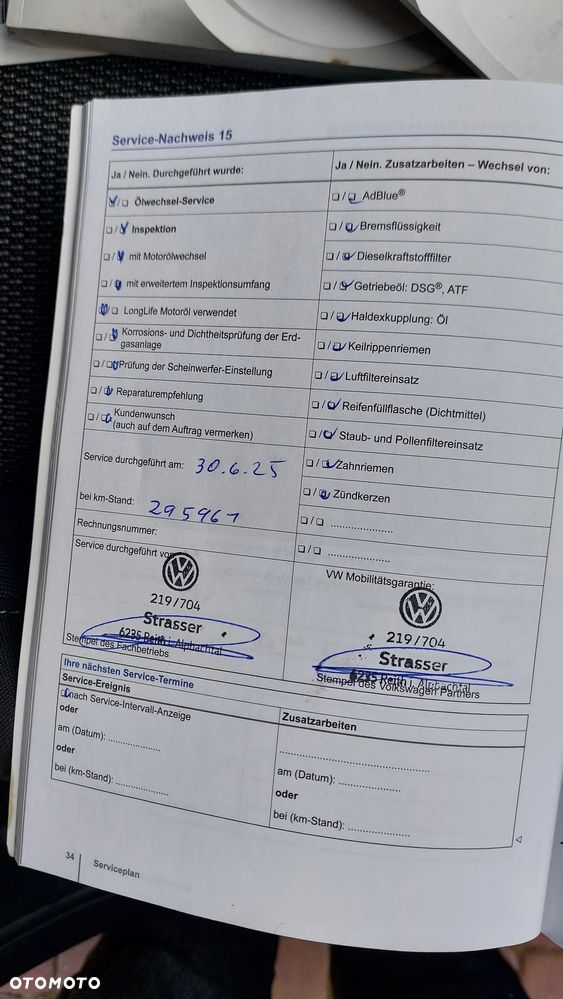 Service-Nachweis 15
Ja / Nein. Durchgeführt wurde:
Ölwechsel-Service
Inspektion
mit Motorölwechsel
mit erweitertem Inspektionsumfang
LongLife Motoröl verwendet
Korrosions- und Dichtheitsprüfung der Erd-
gasanlage
Prüfung der Scheinwerfer-Einstellung
Reparaturempfehlung
Kundenwunsch
(auch auf dem Auftrag vermerken)
Service durchgeführt am: 30.6.25
bei km-Stand: 295961
Rechnungsnummer:
Service durchgeführt von:
219/704
Strasser
6235 Reith i. Alpbachtal
Stempel des Fachbetriebs
Ja / Nein. Zusatzarbeiten – Wechsel von:
AdBlue®
Bremsflüssigkeit
Dieselkraftstofffilter
Getriebeöl: DSG®, ATF
Haldexkupplung: Öl
Keilrippenriemen
Luftfiltereinsatz
Reifenfüllflasche (Dichtmittel)
Staub- und Pollenfiltereinsatz
Zahnriemen
Zündkerzen
....................
....................
VW Mobilitätsgarantie:
219/704
Strasser
6235 Reith i. Alpbachtal
Stempel des Volkswagen Partners
Ihre nächsten Service-Termine
Service-Ereignis
nach Service-Intervall-Anzeige
oder
am (Datum): .................
oder
bei (km-Stand): .................
Zusatzarbeiten
.................................................
am (Datum): ....................
oder
bei (km-Stand): ....................
34
Serviceplan
OTOMOTO